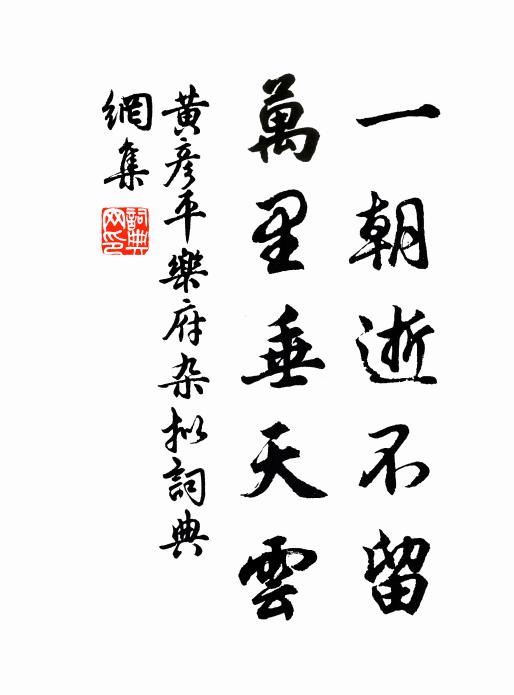 一朝逝不留
萬里垂天雲
黄彦平樂府杂拟詞典
網集
詞典网印